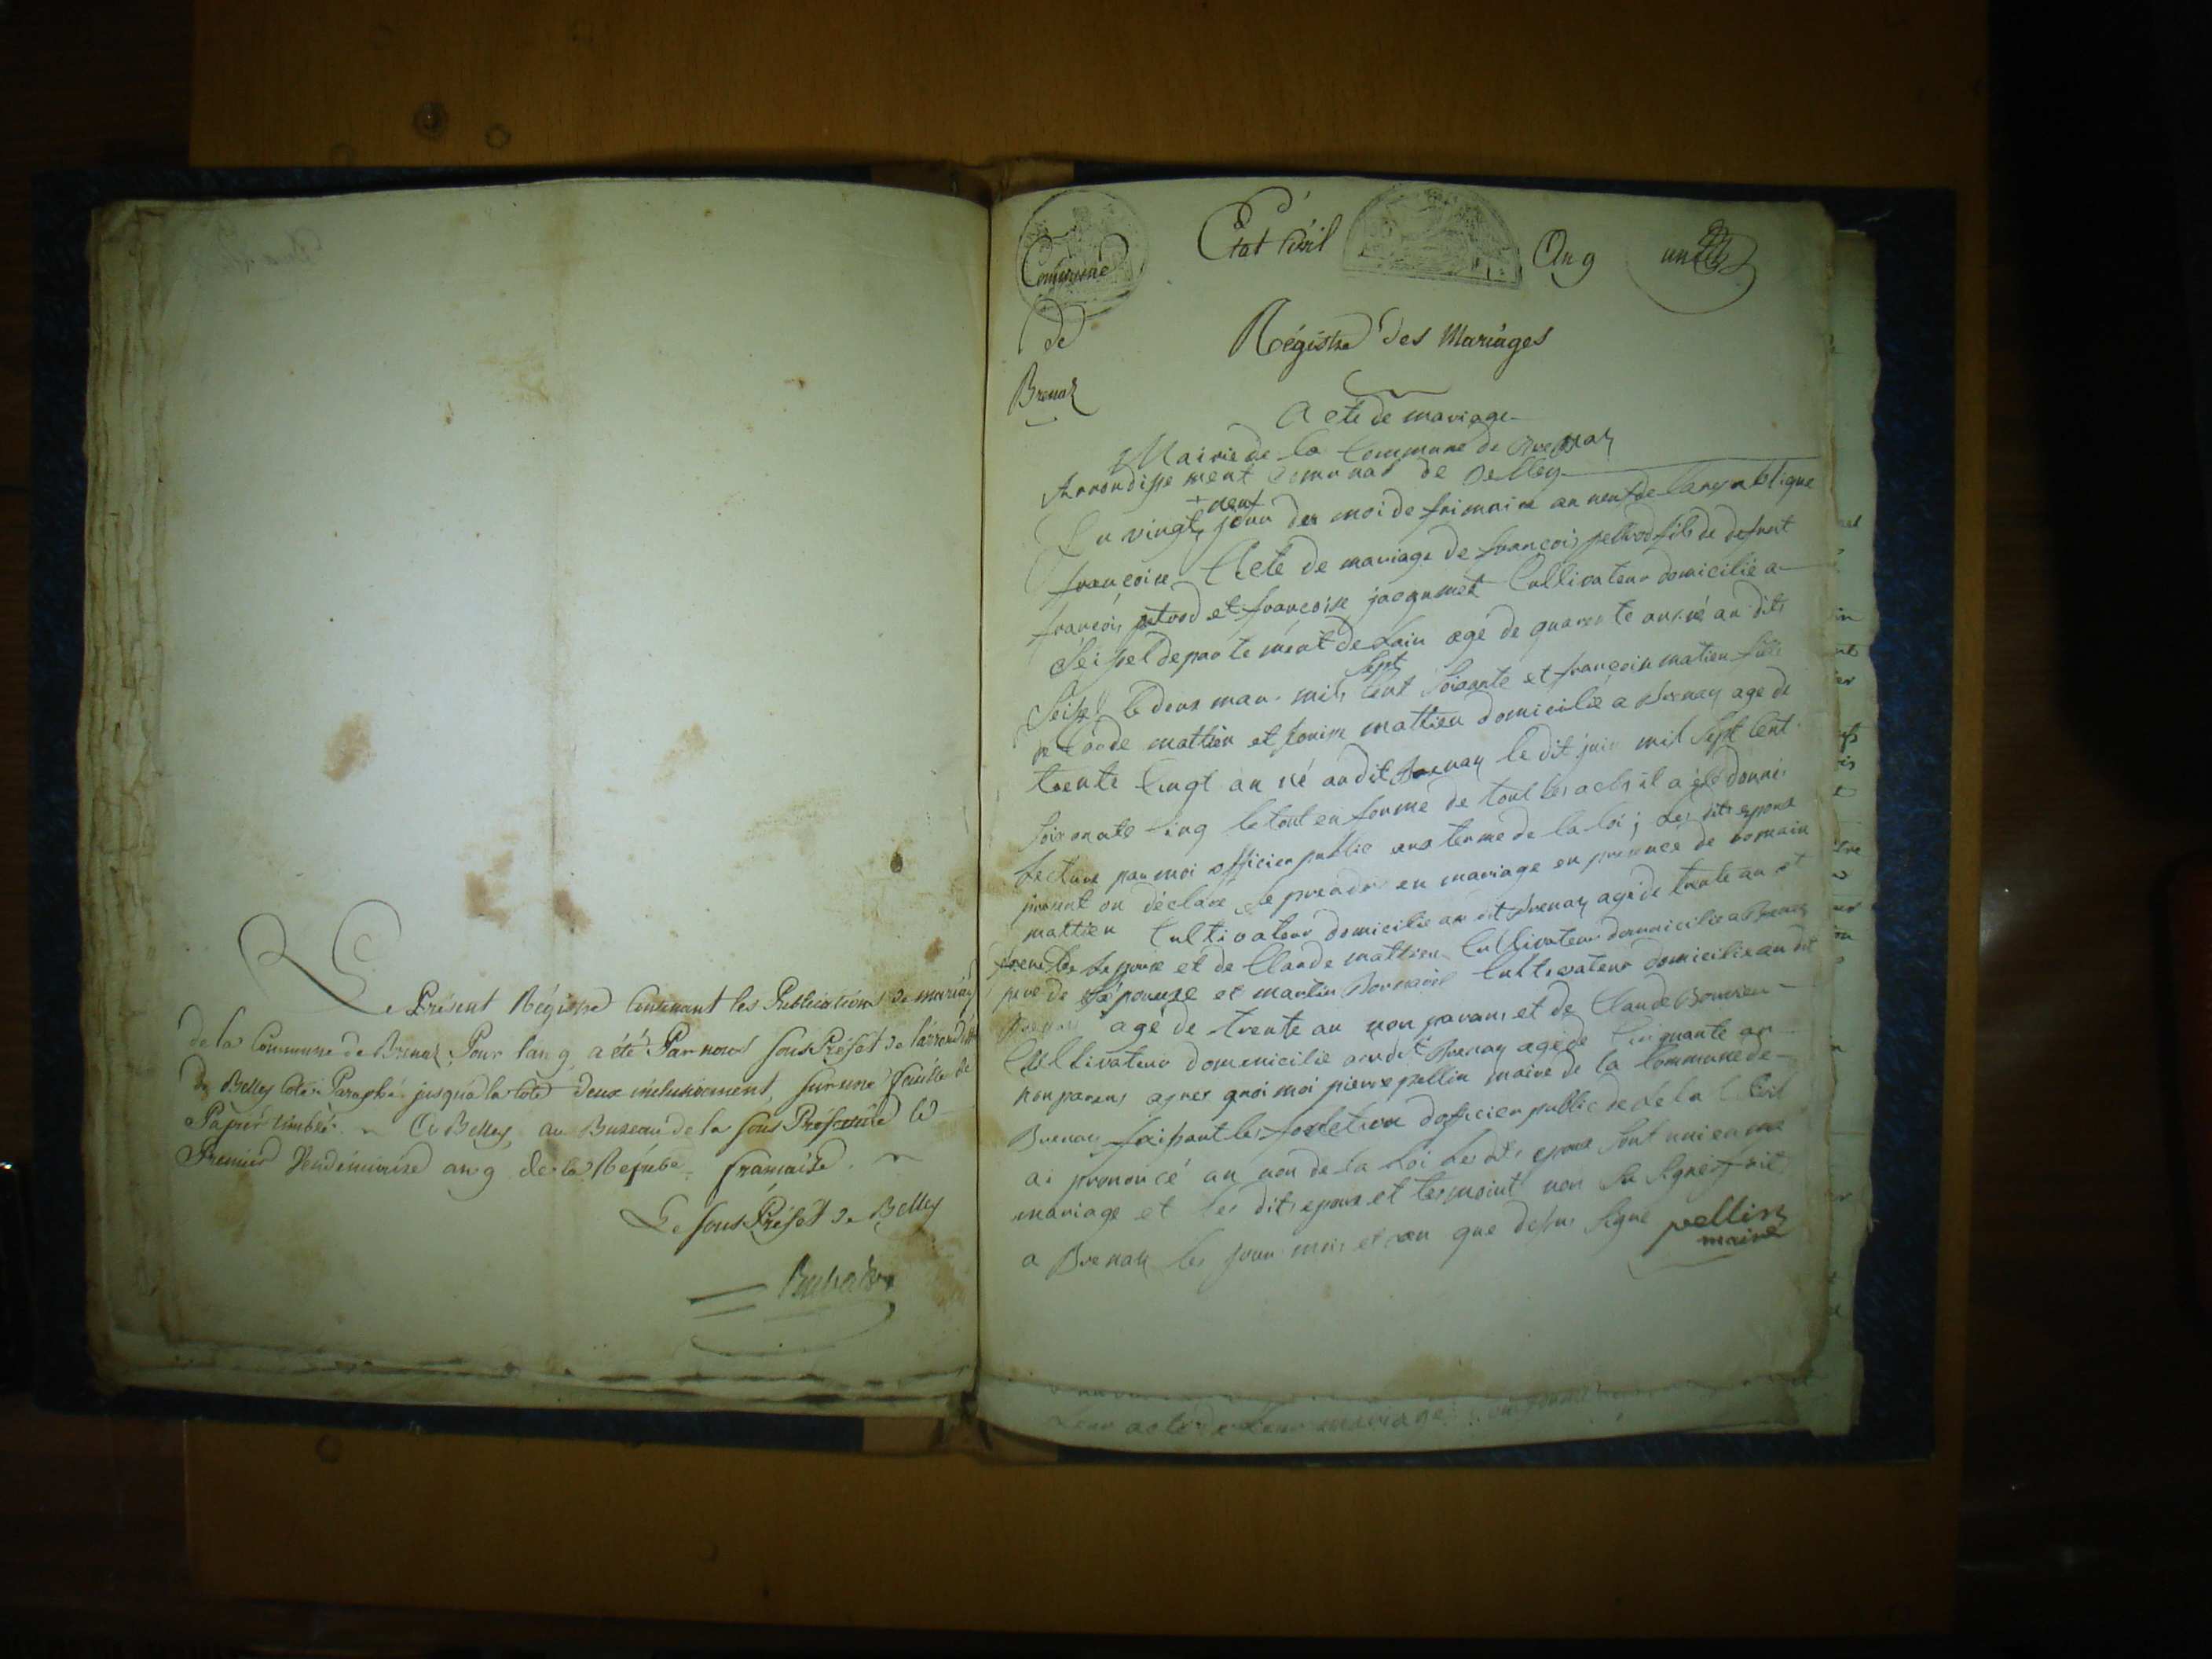 Le Présent Régistre Contenant les Publications de mariag
de la Commune de Brenaz Pour lan 9 a été Par nous sous Préfet de larrondisst
de Belley Coté & Paraphé jusqu'a la cote deux inclusivement, sur une feuille de
Papier timbré. A Belley, au Bureau de la sous Prefecture le
Premier Vendemiaire an 9 de la Répube. française.
Le sous Préfet de Belley
Commune
de
Brenaz
Etat Civil
An 9
un
Régistre des Mariages
Acte de mariage
Mairie de la Commune de Brenaz
Arrondissement Comunal de Belley
Du vingt neuf jour du moi de frimaire an neuf de la republique
françoise Acte de mariage de françois petrod fils de defunt
françois petrod et françoise jacqumet Cultivateur domicilié a
Seissel departement de Lain agé de quarente ans né au dit
Seissel le deux mars mil sept Cent Soixante et françoise matieu fille
de Claude mattieu et louise mattieu domicilié a Brenaz age de
trente Cinqt an né audit Brenaz le dit juin mil Sept Cent
Soixonate cinq le tout en forme de tout les actes il a été donné
Lecture par moi officier public aux terme de la loi; Les dits epoux
present on déclaré se prendre en mariage en presence de romain
mattieu Cultivateur domicilié au dit Brenaz agé de trente an et
frere de Lepouse et de Claude mattieu Cultivateur domicilié a Brenaz
pere de Lépouuse et martin Cultivateur domicilié au dit
Brenaz agé de trente an non parans et de Claude
Cultivateur domicilié audit Brenaz agé de Cinquante an
non parens apres quoi moi pierre pellin maire de la Commune de
Brenaz faisant les fonction dofficier public de Civil
ai prononcé au non de la Loi Les dits epoux sont uni en
mariage et les dits epoux et termoint non Su Signé fait
a Brenaz les jour mois et an que desus Signé pellin
maire
Leur acte de Leur mariage